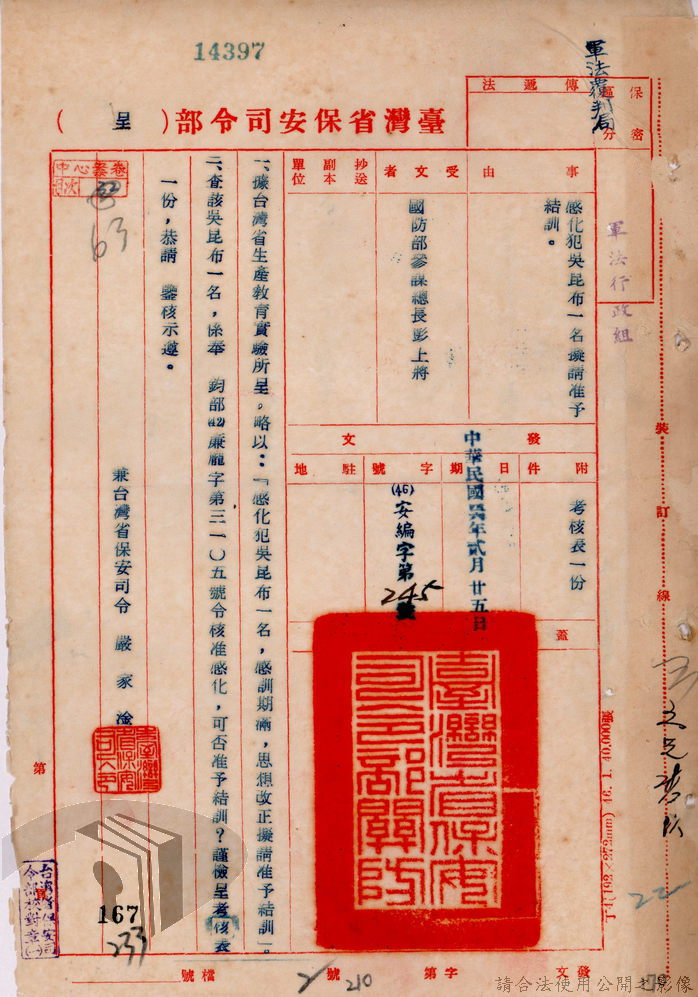 14397
軍法覆判局
保密
區分
傳遞法
臺灣省保安司令部(呈)
軍法行政組
事由
感化犯吳昆布一名擬請准予
結訓。
受文者
國防部參謀總長彭上將
抄送
副本
單位
發文
附件
考核表一份
日期
中華民國 年貳月廿五日
字號
(46)安編字第245號
駐地
蓋
臺灣省保安司令部關防
一、據台灣省生產教育實驗所呈。略以:「感化犯吳昆布一名,感訓期滿,思想改正擬請准予結訓」。
二、查該吳昆布一名,係奉 鈞部(42)廉龐字第三一〇五號令核准感化,可否准予結訓?謹檢呈考核表
一份,恭請 鑒核示遵。
兼台灣省保安司令 嚴家淦
裝訂線
丁4(192×272mm) 46. 1. 40,000張
63
第
台灣省保安司
令部校對章(一)
167
233
發文 字第 號
2
210
檔號
22
170
請合法使用公開之影像